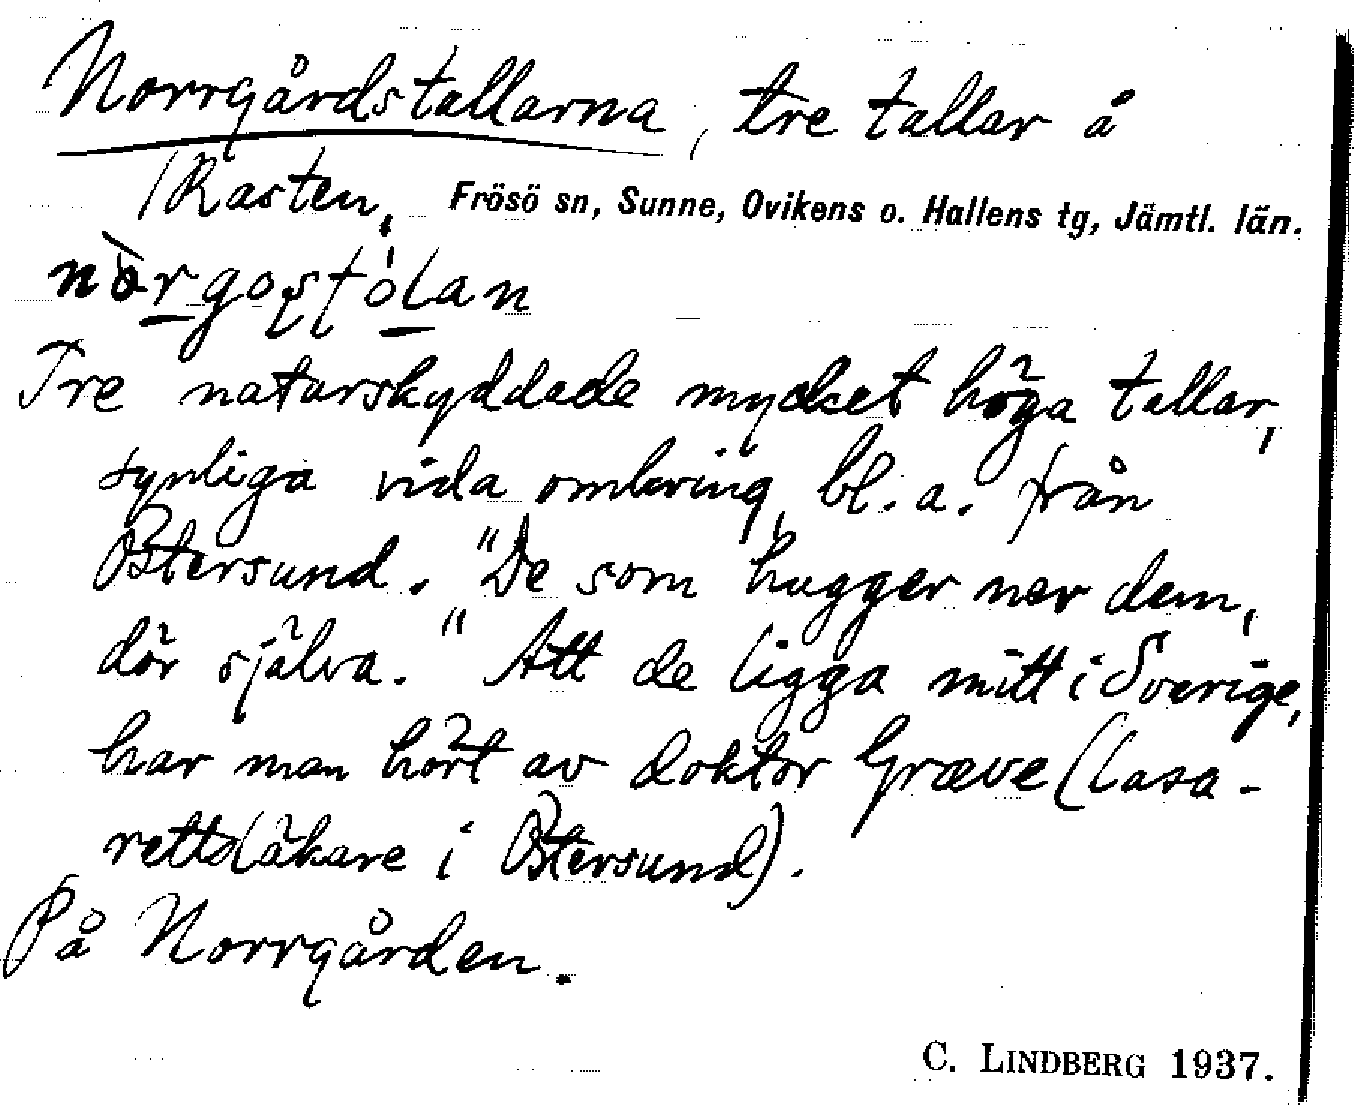 Norrgårdstallarna, tre tallar å
Rasten, Frösö sn, Sunne, Ovikens o. Hallens tg, Jämtl. län.
Tre naturskyddade mycket höga tallar,
synliga vida omkring, bl. a. från
Östersund. "De som hugger ner dem,
dör själva." Att de ligga mitt i Sverige,
har man hört av doktor Græve (lasa-
rettsläkare i Östersund).
På Norrgården.
C. LINDBERG 1937.